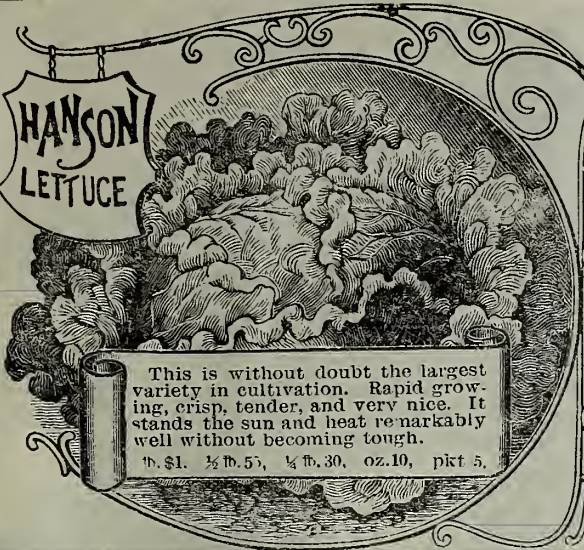 HANSON
LETTUCE
This is without doubt the largest
variety in cultivation. Rapid grow-
ing, crisp, tender, and very nice. It
stands the sun and heat remarkably
well without becoming tough.
℔.$1. ½ ℔.55, ¼ ℔.30, oz.10, pkt 5.